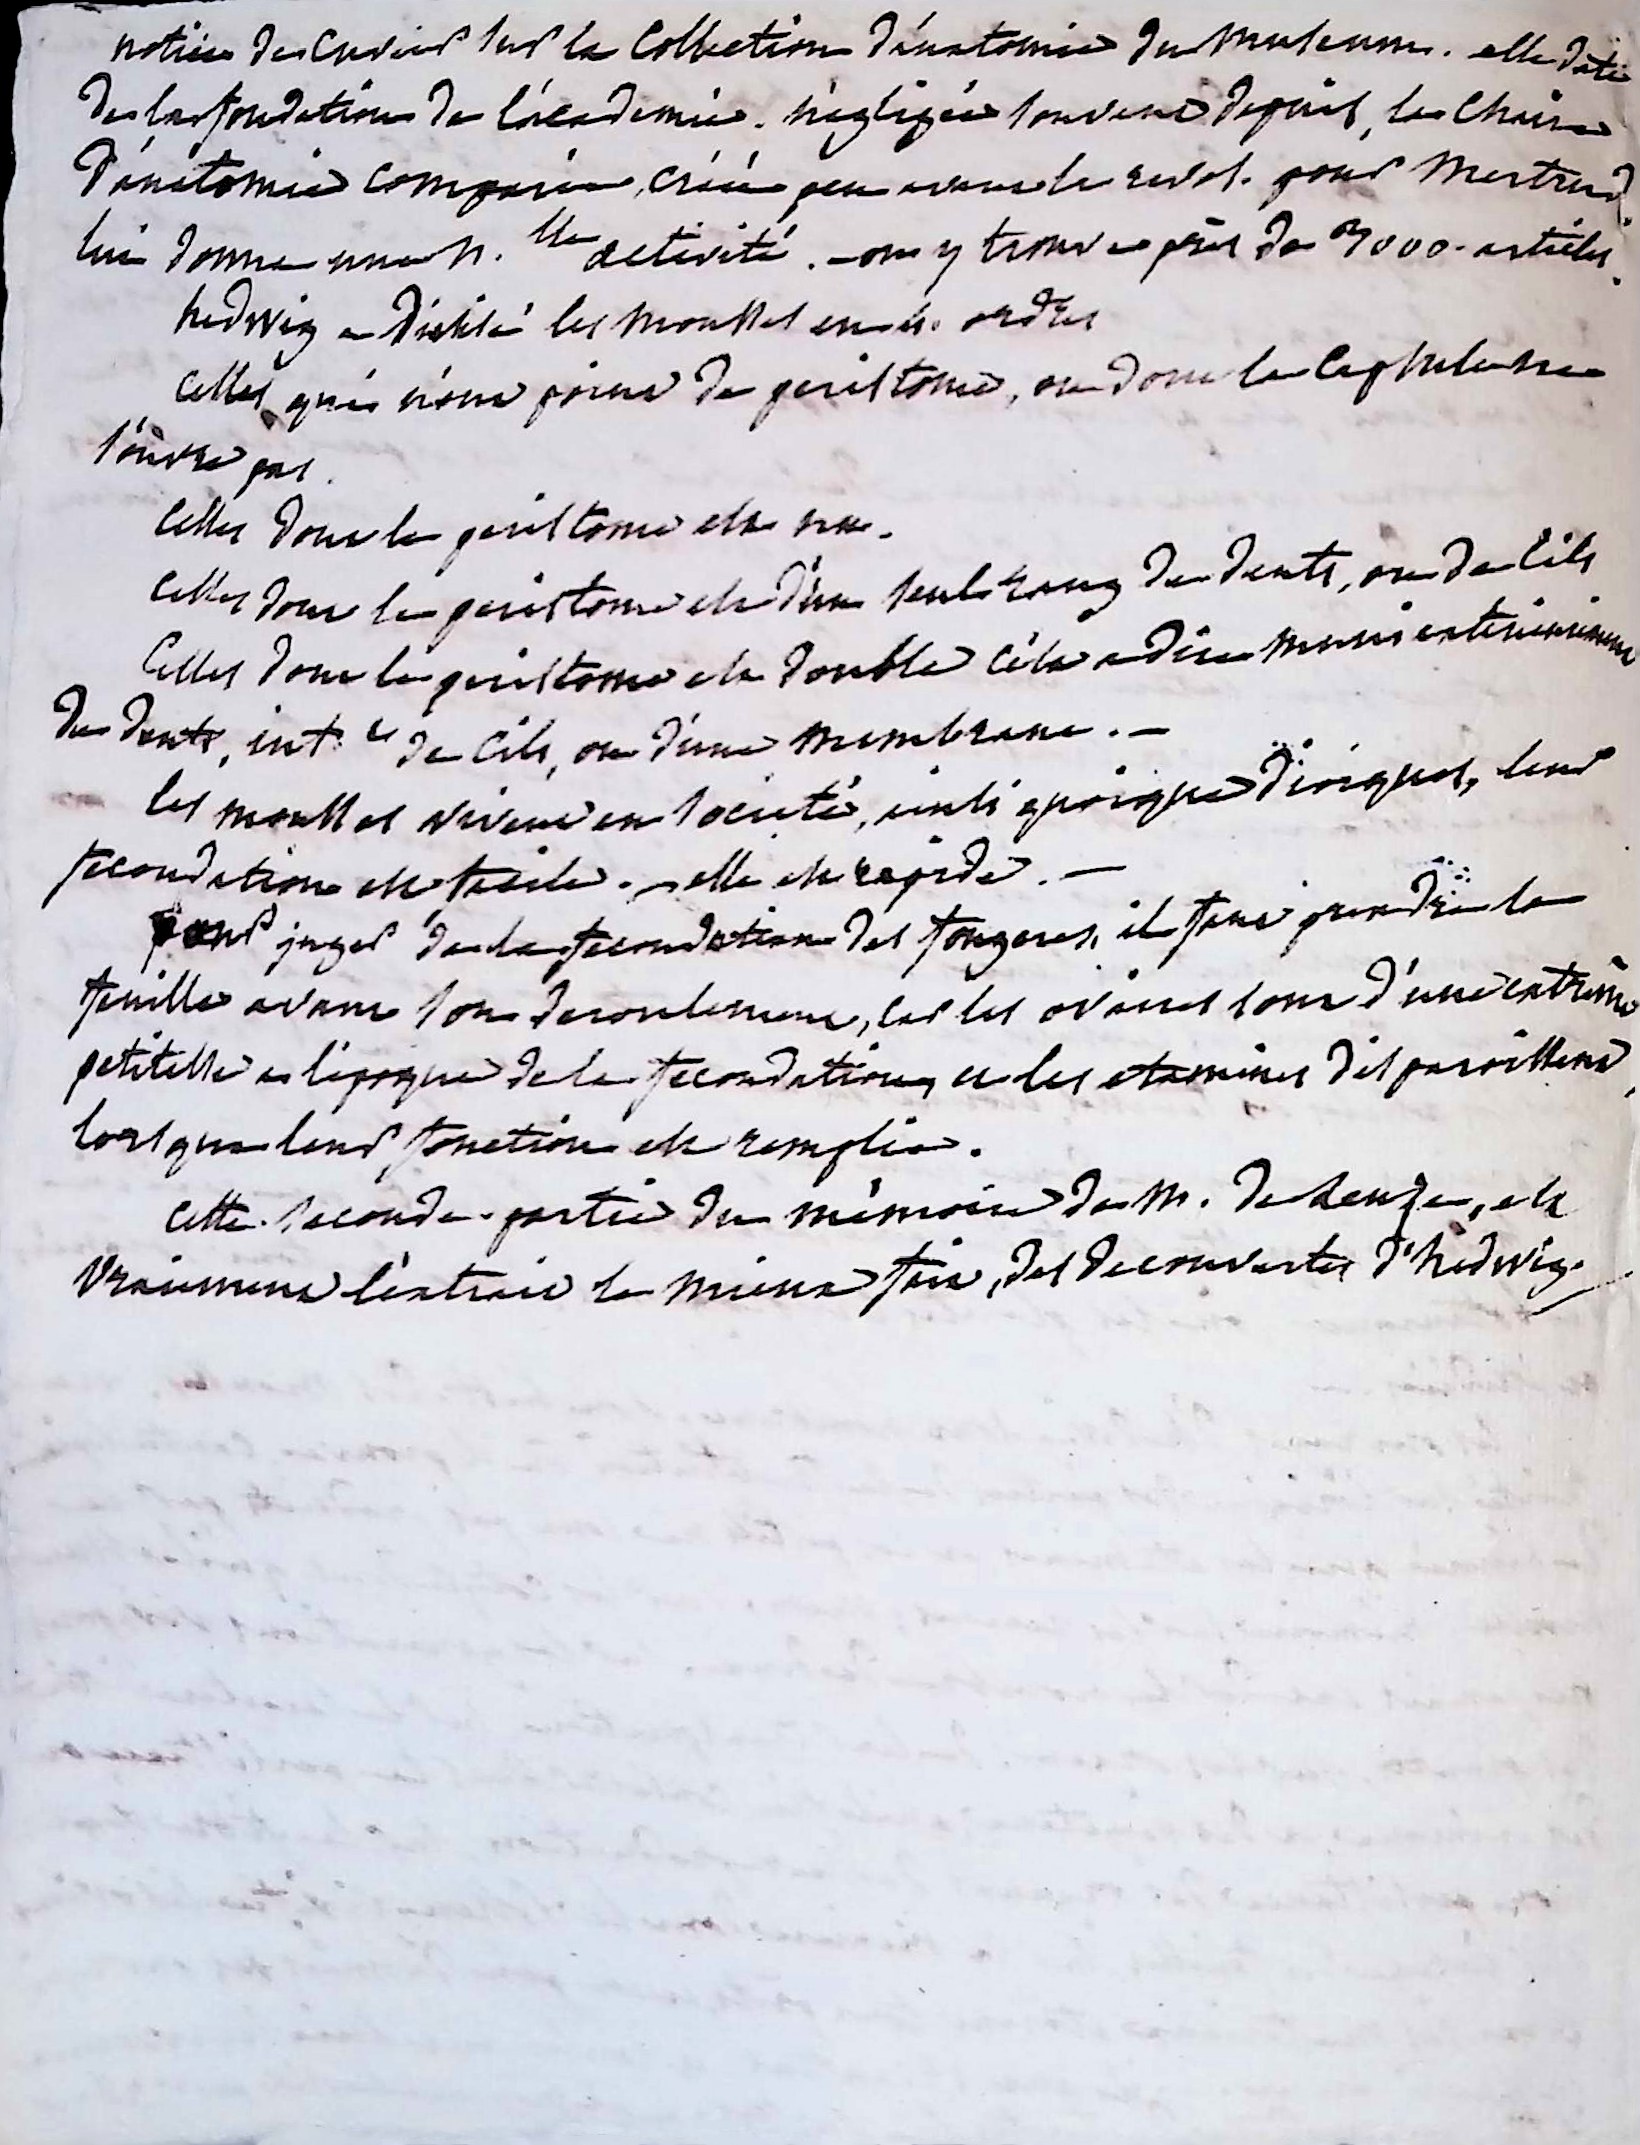 notice de Cuvier sur la Collection d'anatomie du Museum. elle date
de la fondation de l'académie. négligée souvent depuis, la Chaire
d'anatomie comparée, créée peu avant la revol. pour Mertrud
lui donne une n.lle activité. - on y trouve près de 3000. articles.
hedwig a divisé les mousses en 4. ordres
Celles qui n'ont point de peristome, ou dont la Capsule ne
s'ouvre pas.
Celles dont le peristome est nu.
Celles dont le peristome est d'un seul rang de dents, ou de Cils
Celles dont le peristome est double c'est a dire muni exterieurement
de dents, int.t de Cils, ou d'une membrane. -
les mousses vivent en société, ainsi quoique dioiques, leur
fecondation est facile. - elle est rapide. -
pour juger de la fecondation des fougeres, il faut prendre la
feuille avant son deroulement, car les ovaires sont d'une extrême
petitesse a l'epoque de la fecondation, et les etamines disparoissent,
lorsque leur fonction est remplie.
Cette seconde partie du mémoire de M. de Leuze, est
vraiment l'extrait le mieux fait, des decouvertes d'hedwig.